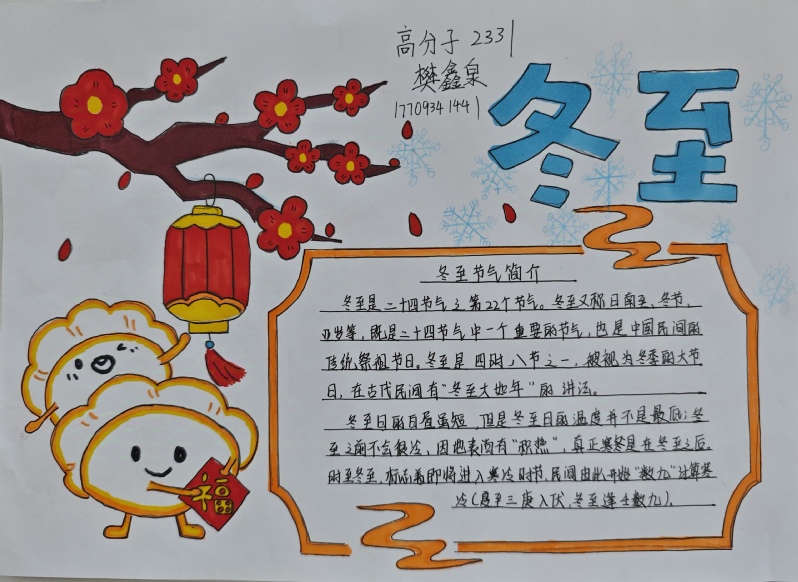 高分子 2331
樊鑫泉
17709341441
冬至
冬至节气简介
冬至是二十四节气之第22个节气。冬至又称日南至、冬节、
亚岁等，既是二十四节气中一个重要的节气，也是中国民间的
传统祭祖节日。冬至是四时八节之一，被视为冬季的大节
日，在古代民间有“冬至大如年”的讲法。
冬至日的白昼虽短，但是冬至日的温度并不是最低；冬
至之前不会很冷，因地表尚有“积热”，真正寒冬是在冬至之后。
时至冬至，标志着即将进入寒冷时节，民间由此开始“数九”计算寒
冷（夏至三庚入伏，冬至逢壬数九）。
福